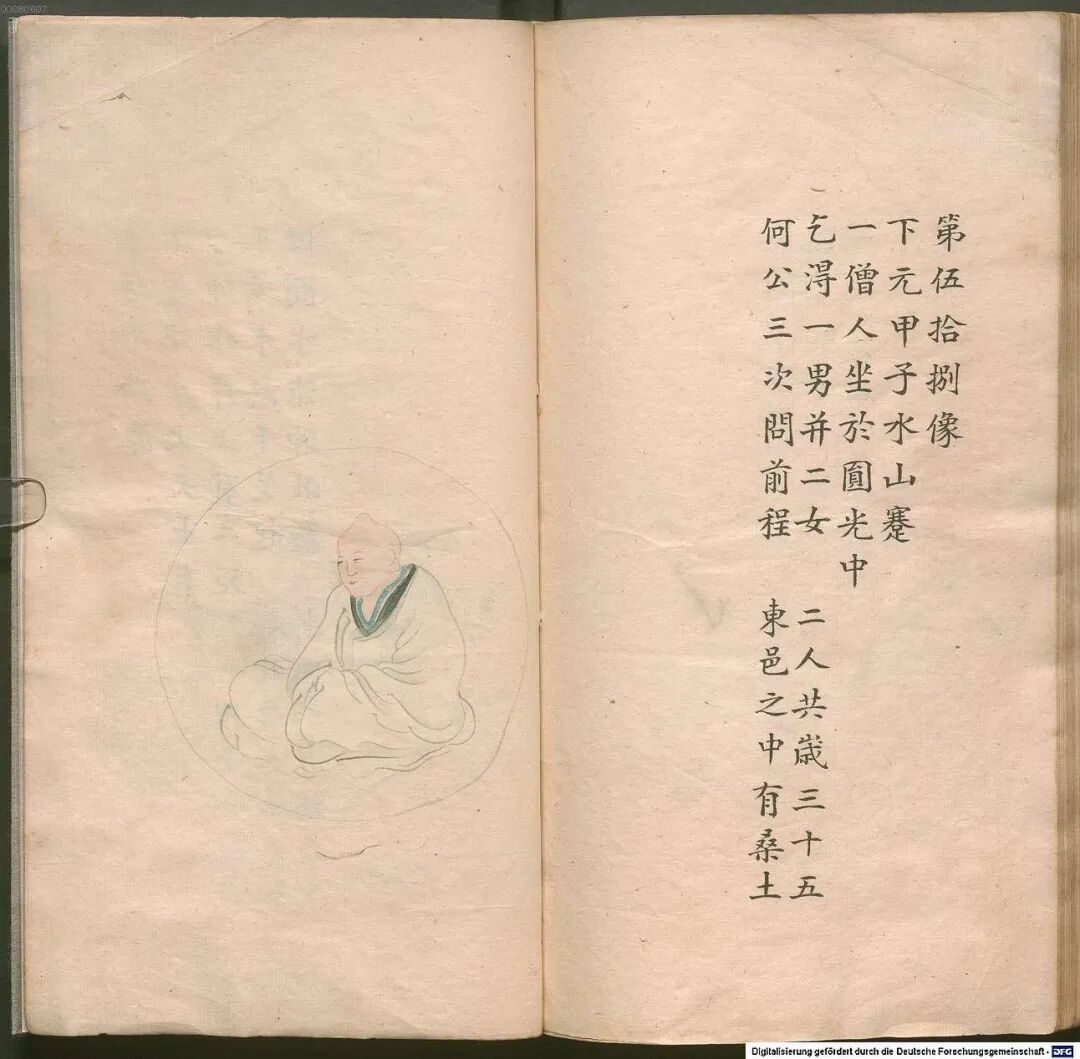 第伍拾捌像
下元甲子水山蹇
一僧人坐於圓光中
乞淂一男并二女 二人共歲三十五
何公三次問前程 東邑之中有桑土
00080607
Digitalisierung gefördert durch die Deutsche Forschungsgemeinschaft - DFG